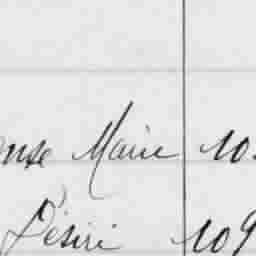 onse Marie 10
Désiré 109